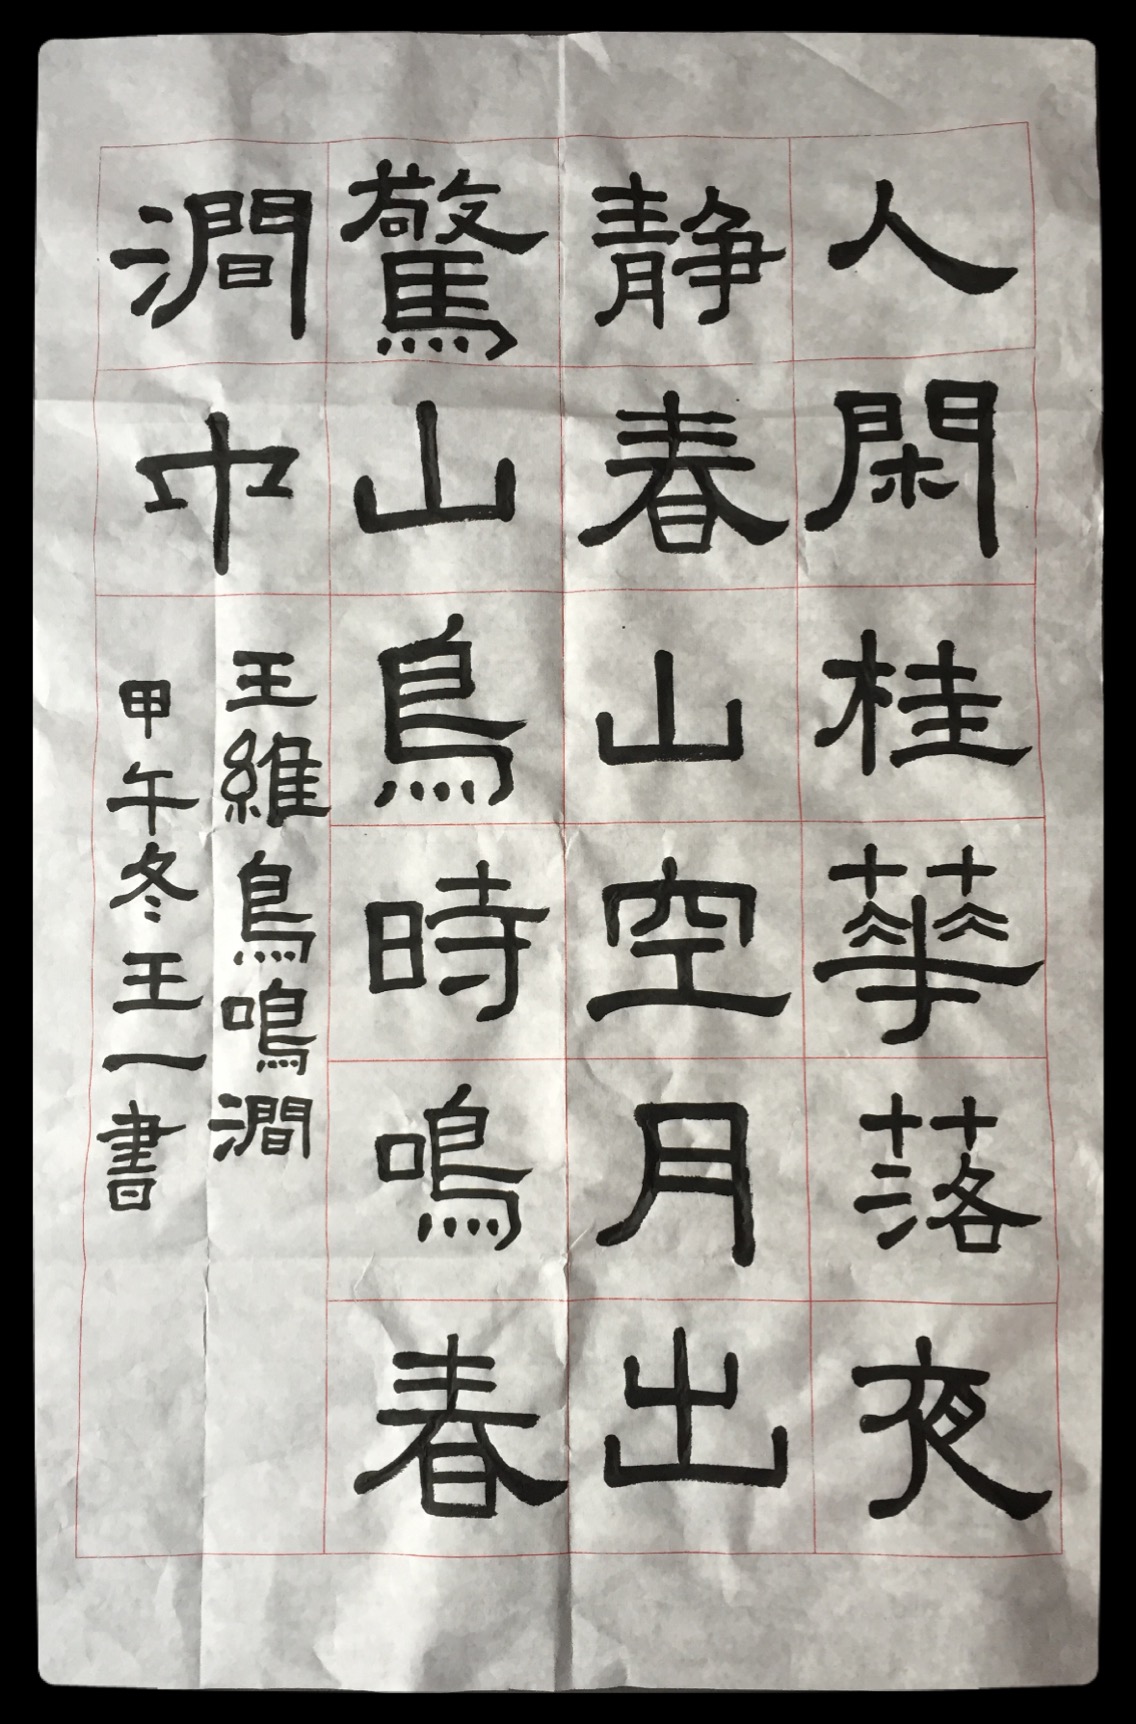 人閑桂華落夜
静春山空月出
驚山鳥時鳴春
澗中
王維鳥鳴澗
甲午冬王一書